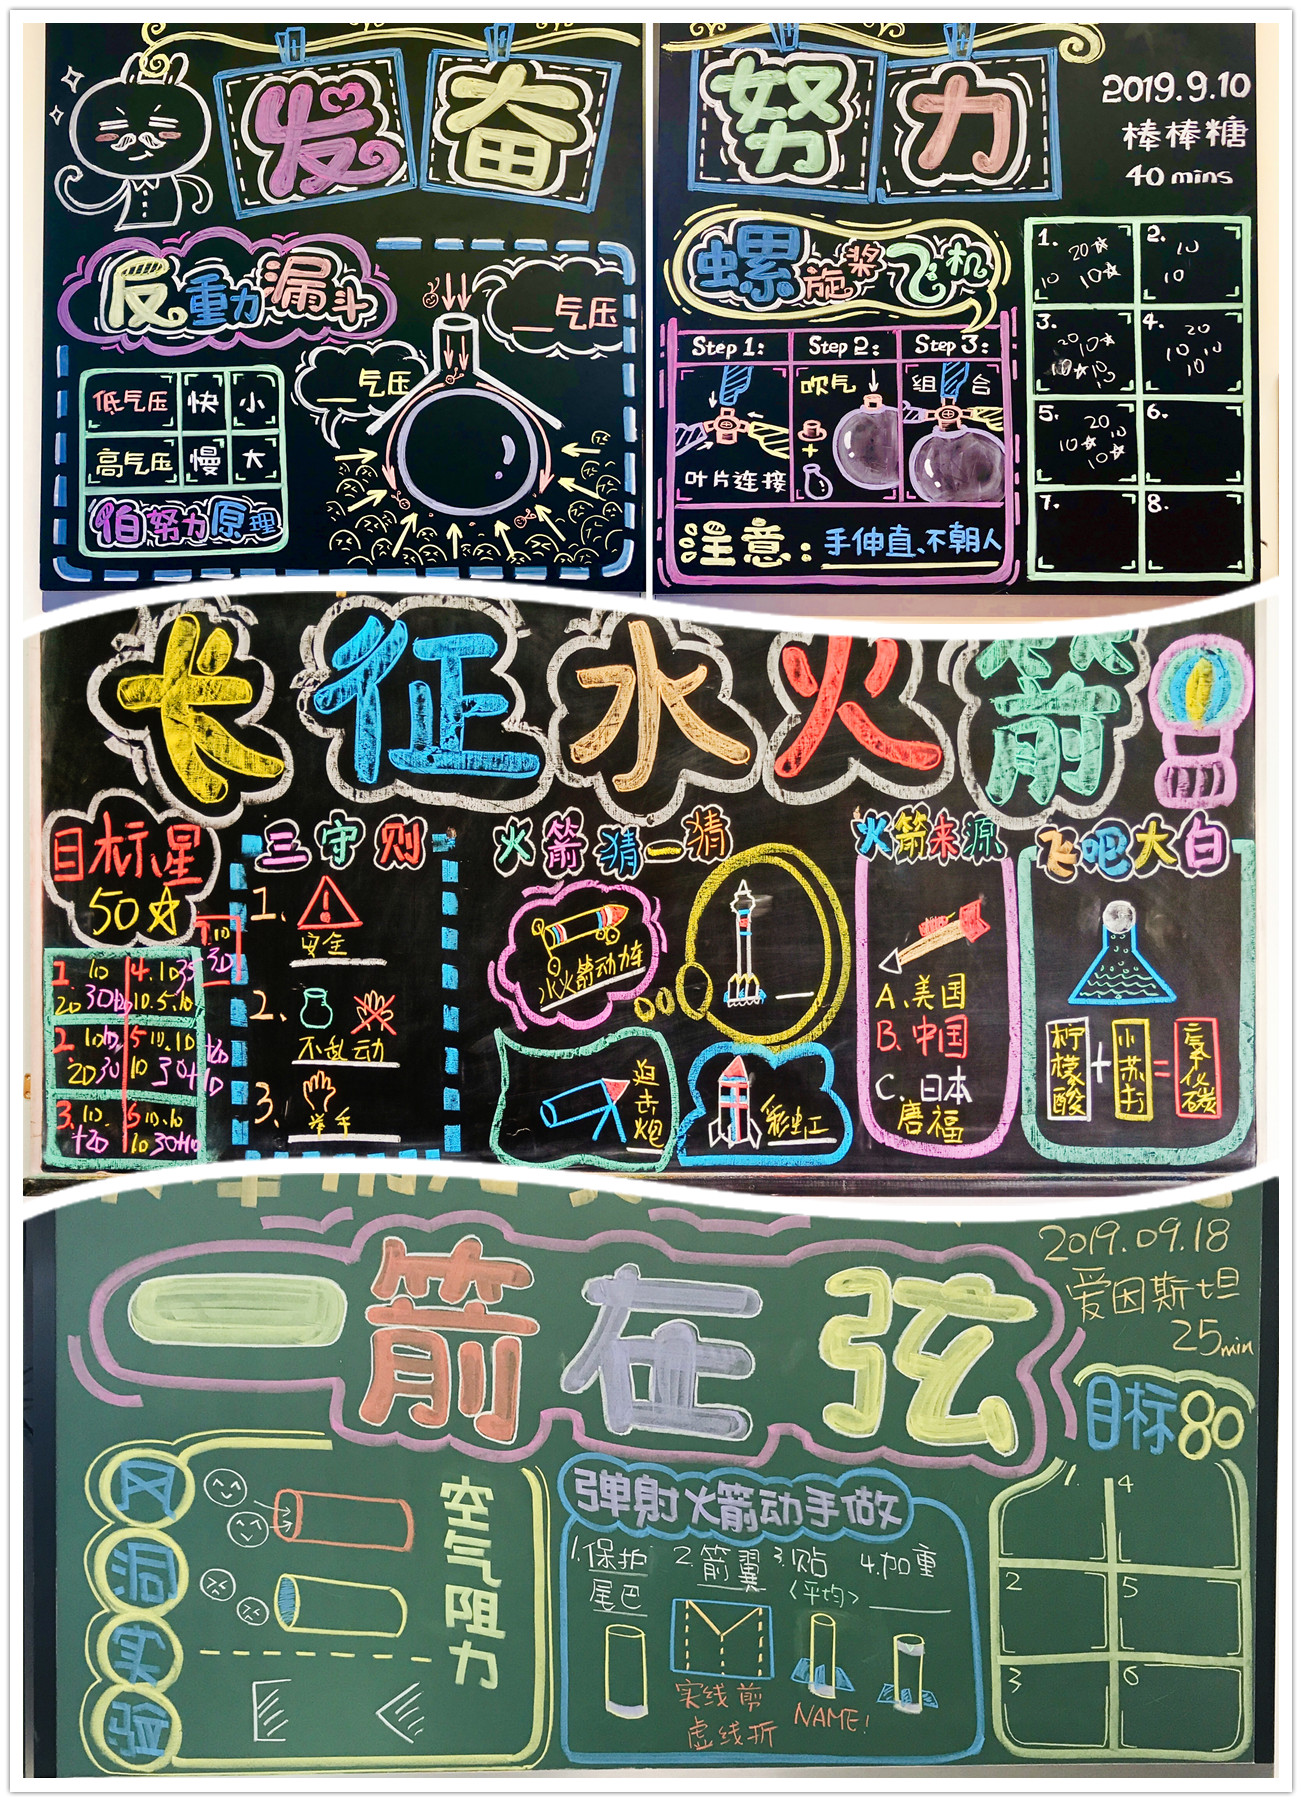 发 奋
反重力漏斗
__气压
__气压
低气压 快 小
高气压 慢 大
伯努力原理
努 力
2019.9.10
棒棒糖
40 mins
螺旋桨飞机
Step 1: Step 2: Step 3:
吹气 组合
叶片连接
注意: 手伸直、不朝人
1. 2.
10 20☆ 10☆ 10 10
3. 4.
20 10☆ 20 10 10 10
5. 6.
20 10☆ 10 10☆
7. 8.
长征水火箭
目标星
50☆
三守则
1. 安全
2. 不乱动
3. 举手
火箭猜一猜
水火箭动力车
迫击炮
彩虹
火箭来源
A.美国
B.中国
C.日本
唐福
飞吧大白
柠檬酸 + 小苏打 =
一箭在弦
2019.09.18
爱因斯坦
25min
目标80
1. 4
2 5
3 6
风洞实验
空气阻力
弹射火箭动手做
1.保护尾巴
2.箭翼
3.贴
<平均>
4.加重____
实线剪
虚线折
NAME!